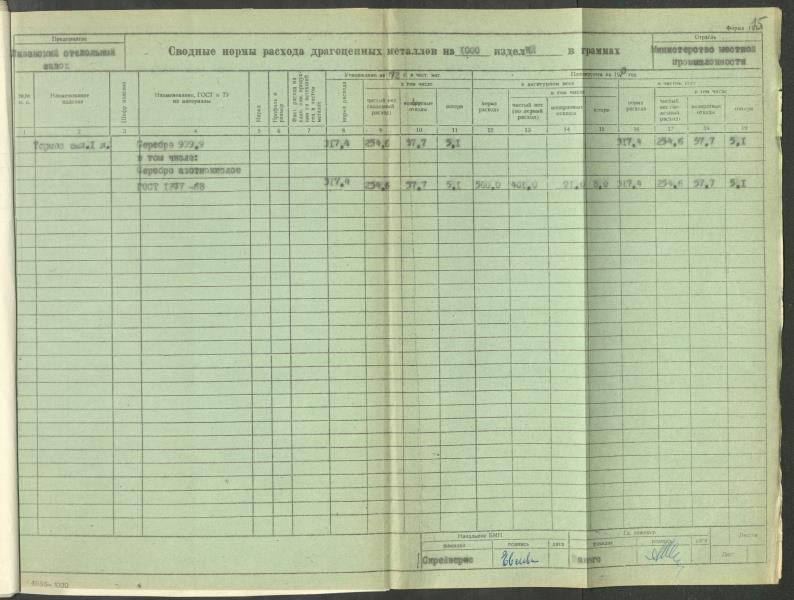 15
Форма 1
Предприятие
стекольный
завод
Сводные нормы расхода драгоценных металлов на 1000 изделий в граммах
Отрасль
Министерство местной
промышленности
№№ п. п.
Наименование изделия
Шифр изделия
Наименование, ГОСТ и ТУ на материалы
Марка
Профиль и размер
Утверждено на
72
норма расхода
чистый вес
возвратные отходы
потери
в лигатурном весе
в том числе
норма расхода
чистый вес
возвратные отходы
потери
год
в чистом весе
в том числе
норма расхода
чистый вес
возвратные отходы
потери
1 2 3 4 5 6 7 8 9 10 11 12 13 14 15 16 17 18 19
Термос емк.1 л. Серебро 999,9 317,4 254,6 57,7 5,1 317,4 254,6 57,7 5,1
в том числе:
Серебро азотнокислое
ГОСТ 1277 -68 317,4 254,6 57,7 5,1 500,0 401,0 91,0 8,0 317,4 254,6 57,7 5,1
Начальник БМН
фамилия подпись дата
Гл. инженер
фамилия подпись дата
Листов
Лист